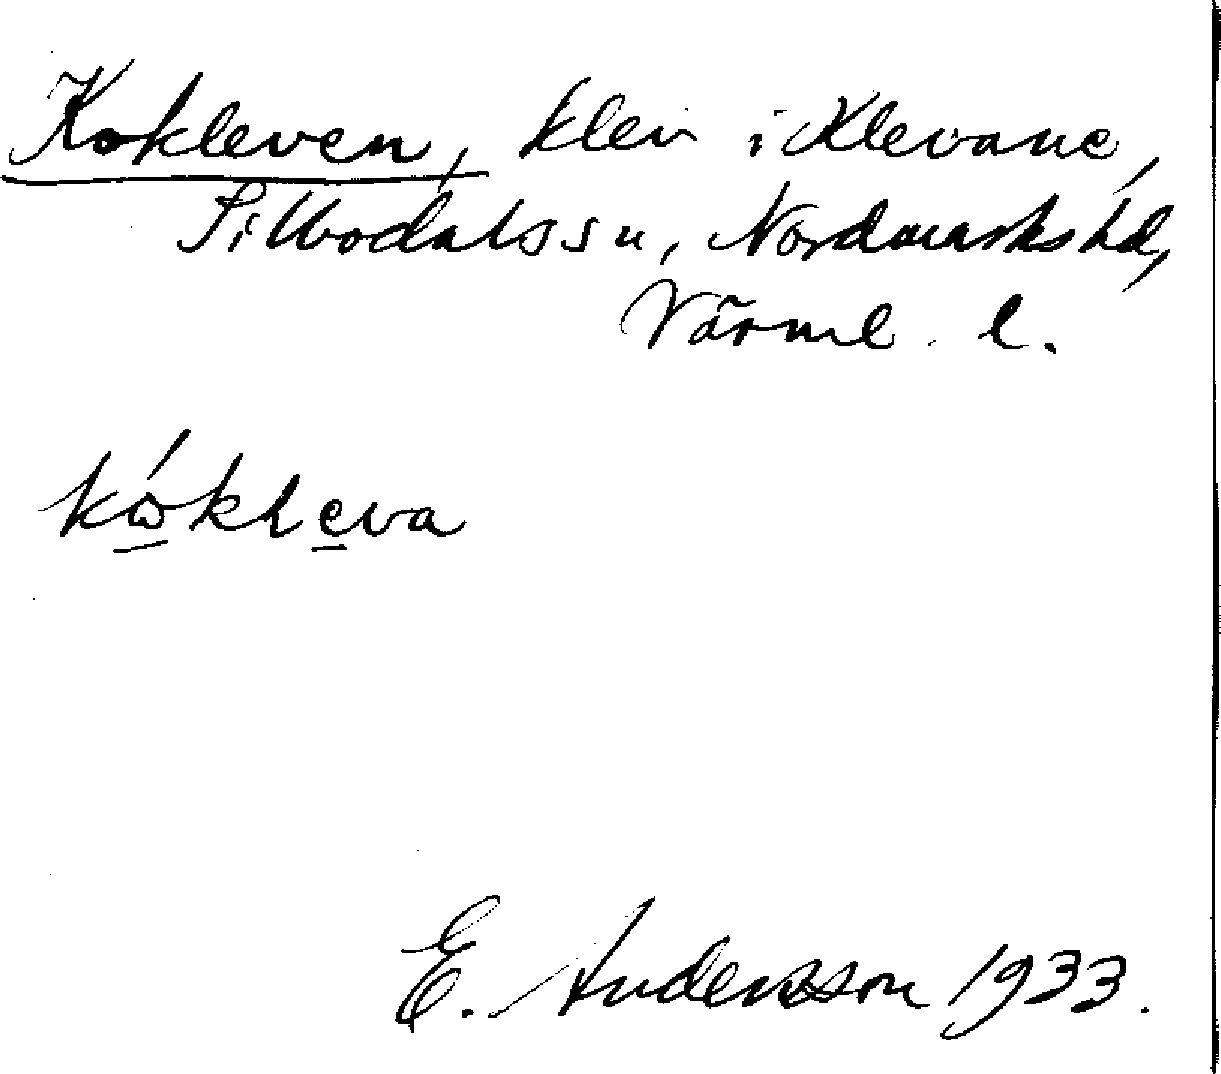 Kokleven, klev i Klevane,
Silbodals sn, Nordmarks hd,
Värml. l.
kẃkleva
E. Andersson 1933.